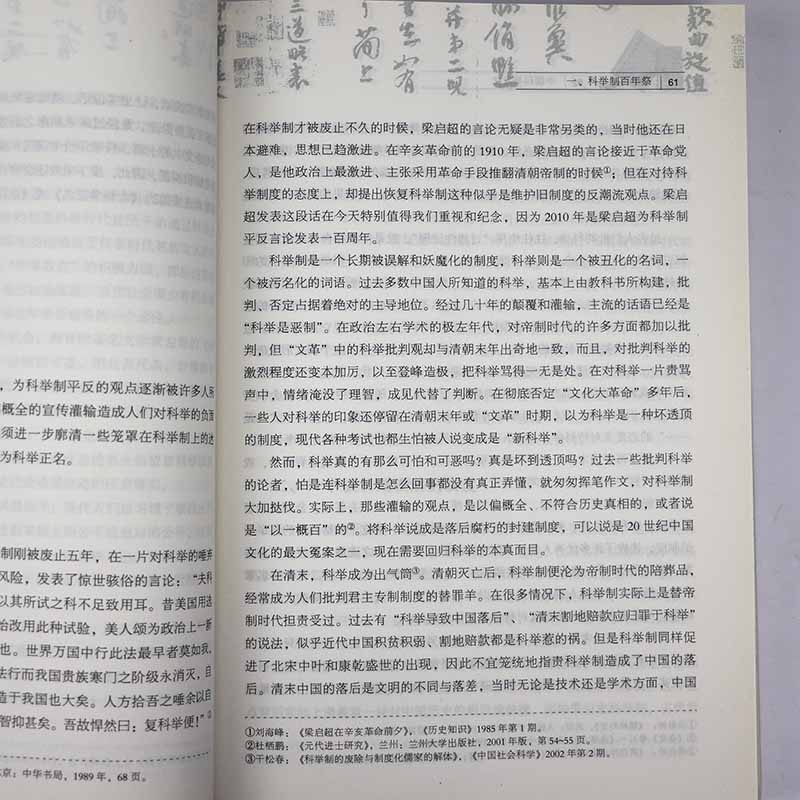 ，为科举制平反的观点逐渐被许多人所
概全的宣传灌输造成人们对科举的负面
须进一步廓清一些笼罩在科举制上的迷
为科举正名。
制刚被废止五年，在一片对科举的唾弃
风险，发表了惊世骇俗的言论：“夫科
以其所试之科不足致用耳。昔美国用选
始改用此种试验，美人颂为政治上一新
也。世界万国中行此法最早者莫如我，
法行而我国贵族寒门之阶级永消灭，自
造于我国也大矣。人方拾吾之唾余以自
智抑甚矣。吾故悍然曰：复科举便！”
京：中华书局，1989年，68页。
一、科举制百年祭 61
在科举制才被废止不久的时候，梁启超的言论无疑是非常另类的，当时他还在日
本避难，思想已趋激进。在辛亥革命前的1910年，梁启超的言论接近于革命党
人，是他政治上最激进、主张采用革命手段推翻清朝帝制的时候①；但在对待科
举制度的态度上，却提出恢复科举制这种似乎是维护旧制度的反潮流观点。梁启
超发表这段话在今天特别值得我们重视和纪念，因为2010年是梁启超为科举制
平反言论发表一百周年。
科举制是一个长期被误解和妖魔化的制度，科举则是一个被丑化的名词，一
个被污名化的词语。过去多数中国人所知道的科举，基本上由教科书所构建，批
判、否定占据着绝对的主导地位。经过几十年的颠覆和灌输，主流的话语已经是
“科举是恶制”。在政治左右学术的极左年代，对帝制时代的许多方面都加以批
判，但“文革”中的科举批判观却与清朝末年出奇地一致，而且，对批判科举的
激烈程度还变本加厉，以至登峰造极，把科举骂得一无是处。在对科举一片责骂
声中，情绪淹没了理智，成见代替了判断。在彻底否定“文化大革命”多年后，
一些人对科举的印象还停留在清朝末年或“文革”时期，以为科举是一种坏透顶
的制度，现代各种考试也都生怕被人说变成是“新科举”。
然而，科举真的有那么可怕和可恶吗？真是坏到透顶吗？过去一些批判科举
的论者，怕是连科举制是怎么回事都没有真正弄懂，就匆匆挥笔作文，对科举制
大加挞伐。实际上，那些灌输的观点，是以偏概全、不符合历史真相的，或者说
是“以一概百”的②。将科举说成是落后腐朽的封建制度，可以说是20世纪中国
文化的最大冤案之一，现在需要回归科举的本真面目。
在清末，科举成为出气筒③。清朝灭亡后，科举制便沦为帝制时代的陪葬品，
经常成为人们批判君主专制制度的替罪羊。在很多情况下，科举制实际上是替帝
制时代担责受过。过去有“科举导致中国落后”、“清末割地赔款应归罪于科举”
的说法，似乎近代中国积贫积弱、割地赔款都是科举惹的祸。但是科举制同样促
进了北宋中叶和康乾盛世的出现，因此不宜笼统地指责科举制造成了中国的落
后。清末中国的落后是文明的不同与落差，当时无论是技术还是学术方面，中国
①刘海峰：《梁启超在辛亥革命前夕》，《历史知识》1985年第1期。
②杜栖鹏：《元代进士研究》，兰州：兰州大学出版社，2001年版，第54~55页。
③干松春：《科举制的废除与制度化儒家的解体》，《中国社会科学》2002年第2期。